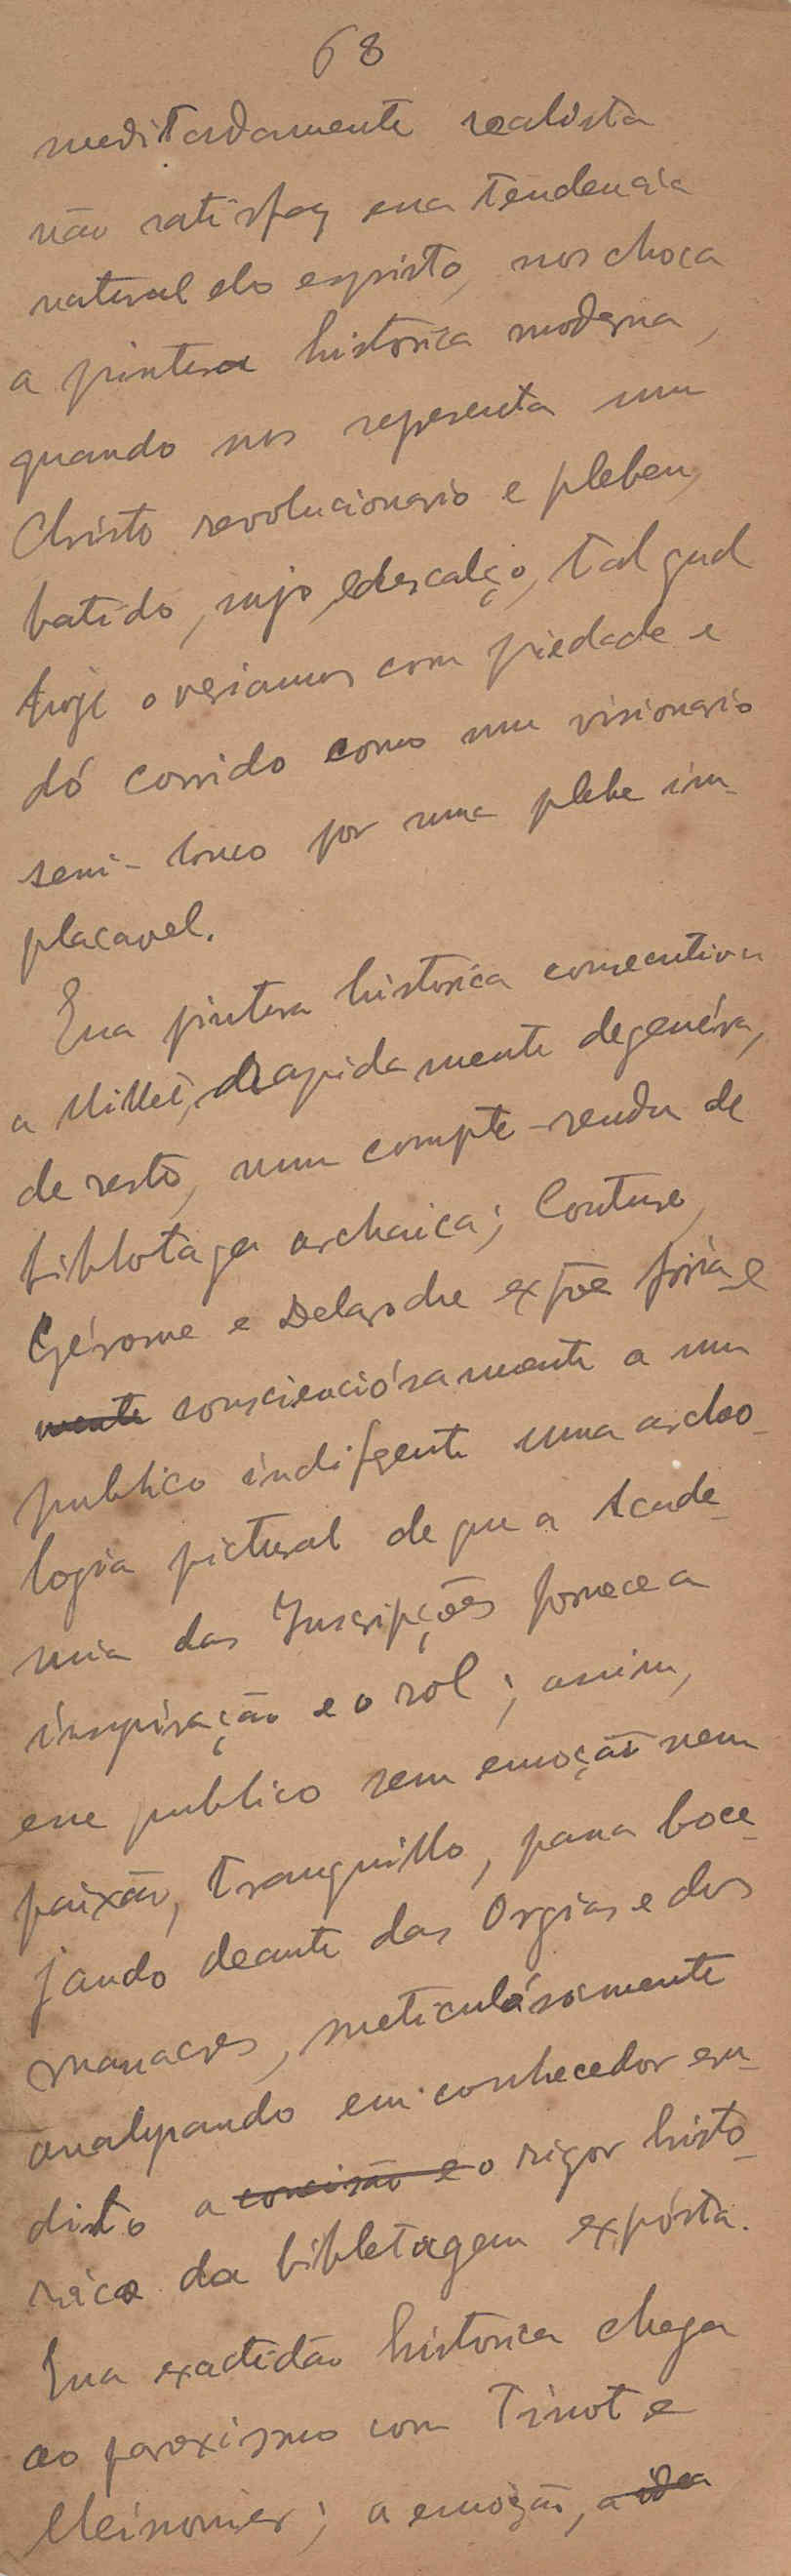 68
meditadamente realista
não satisfaz essa tendencia
natural do espirito, nos choca
a pintura historica moderna,
quando nos representa um
Christo revolucionario e plebeu,
batido, sujo, e descalço, tal qual
hoje o veriamos com piedade e
dó corrido como um visionario
semi-louco por uma plebe im-
placavel.
Essa pintura historica consecutiva
a Millet, rapidamente degenéra,
de resto, num compte-rendu de
biblotage archaica; Couture,
Gérome e Delaroche expõe fria e
mente conscienciósamente a um
publico indifgente uma archeo-
logia pictural de que a Acade-
mia das Inscripções fornece a
inspiração e o rol; assim,
esse publico sem emoção nem
paixão, tranquillo, passa boce-
jando deante das Orgias e dos
massacres, meticulósamente
analysando em conhecedor eru-
dito a concisão e o rigor histo-
rico da bibletagem expósta.
Essa exactidão historica chega
ao paroxismo com Tissot e
Meissonier; a emoção, a idea